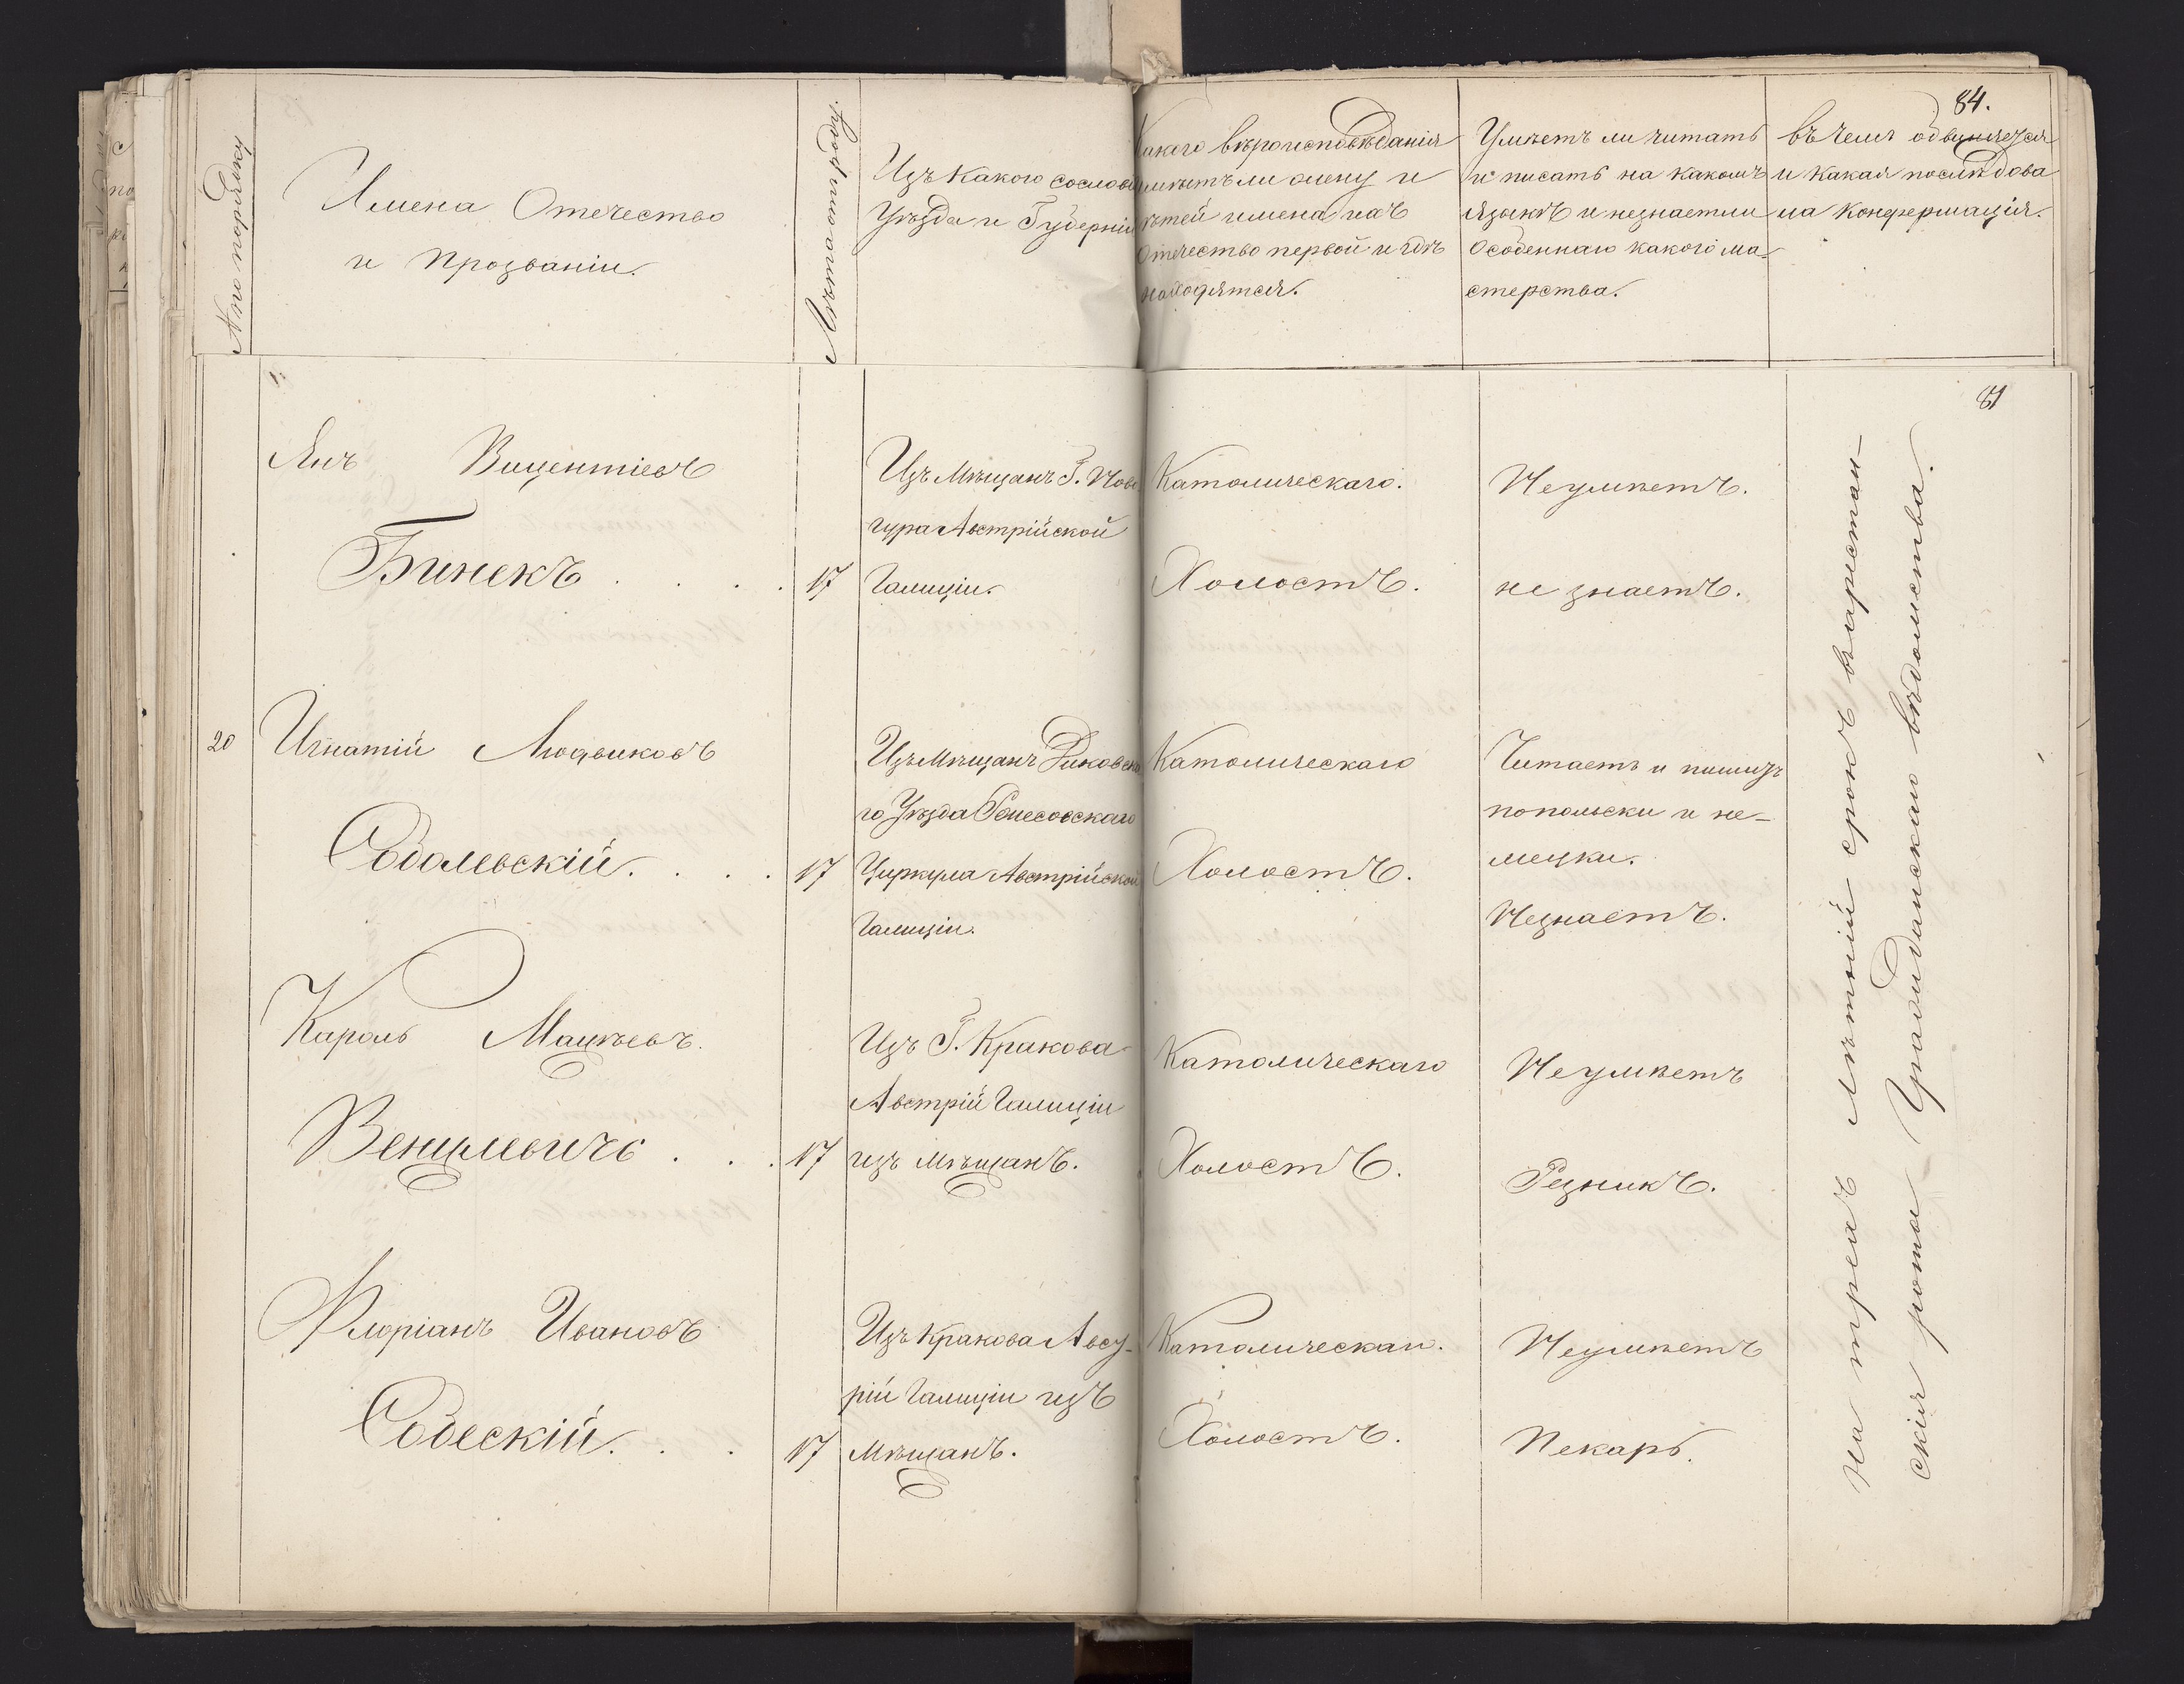 84.
№ по порядку
Имена Отечество
и Прозваніи.
Лѣта отроду.
Изъ какого сословія
Уѣзда и Губерніи
Какаго вѣроисповѣданія
имѣетъ ли жену и
дѣтей имена ихъ
Отечество первой и гдѣ
находятся.
Умѣетъ ли читать
и писать на какомъ
языкѣ и незнаетли
особеннаго какого ма-
стерства.
въ чемъ обвиняется
и какая послѣдова
ла конфермація.
81
Янъ Вицентіевъ
Бинекъ . . . .
17
Изъ Мѣщанъ Г. Нове
Австрійской
Галиціи.
Католическаго.
Холостъ.
Неумѣетъ.
не знаетъ.
20
Игнатій Людвиковъ
Соболевскій. . . .
17
Изъ Мѣщанъ Диковска
го Уѣзда
Циркула Австрійской
Галиціи.
Католическаго
Холостъ.
Читаетъ и пишетъ
попольски и не-
мецки.
Незнаетъ.
Кароль Мацѣевъ.
. . .
17
Изъ Г. Кракова
Австрій Галиціи
изъ мѣщанъ.
Католическаго
Холостъ.
Неумѣетъ
Резникъ.
Флоріанъ Ивановъ
Собескій. . .
17
Изъ Кракова Авст-
рій Галиціи изъ
Мѣщанъ.
Католическаго.
Холостъ.
Неумѣетъ
Пекарь.
на трехъ лѣтній срокъ въ арестан-
скія роты Гражданскаго вѣдомства.